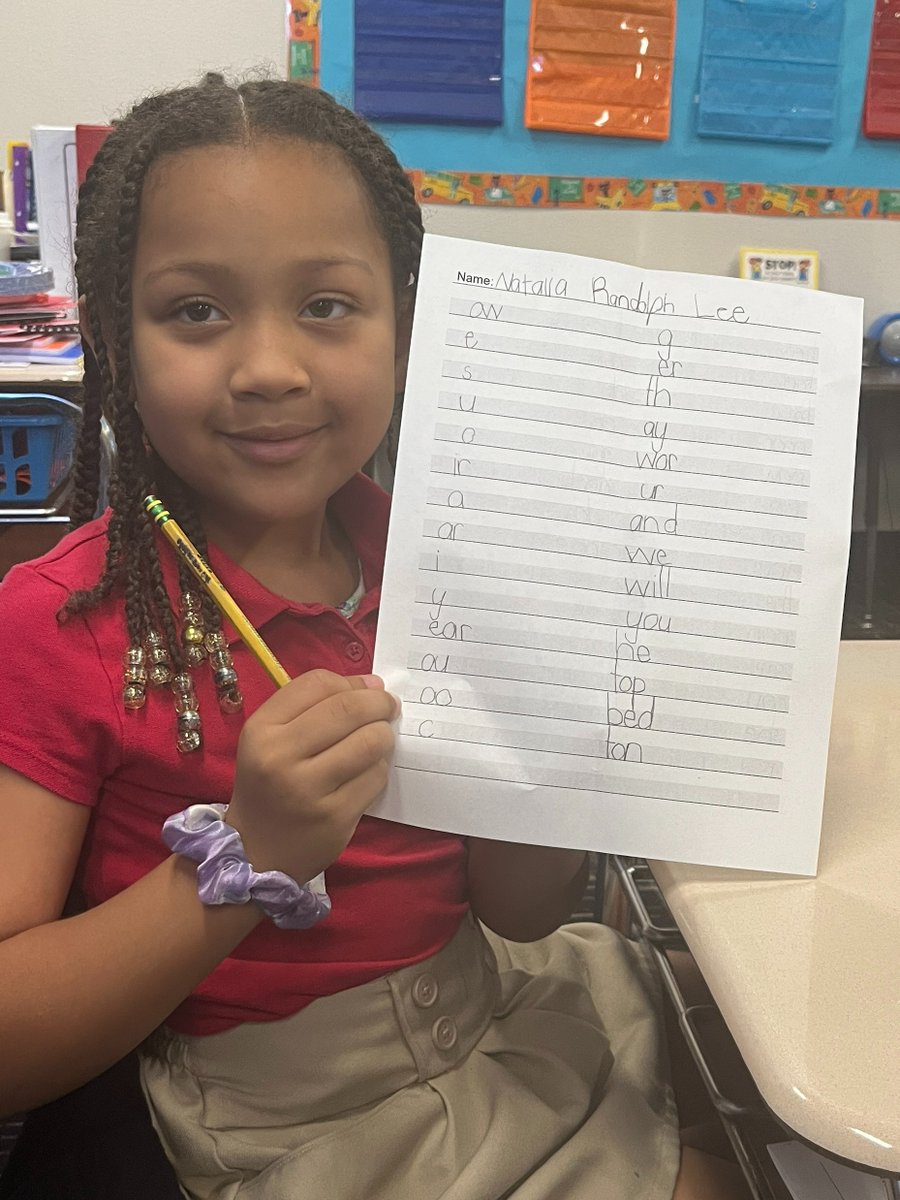 STOP!
Name: Natalia Randolph Lee
aw
e
s
u
o
ir
a
ar
i
y
ear
ou
oo
c
g
er
th
ay
wor
ur
and
we
will
you
he
top
bed
ton